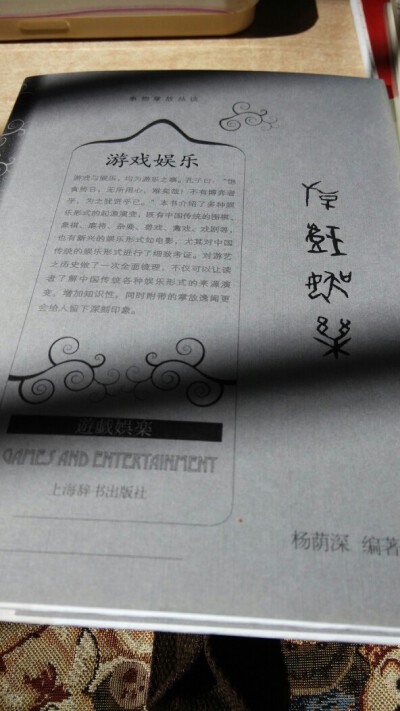 事物掌故丛谈
游戏娱乐
游戏与娱乐，均为游乐之事。孔子曰："饱
食终日，无所用心，难矣哉！不有博弈者
乎，为之犹贤乎已。"本书介绍了多种娱
乐形式的起源演变，既有中国传统的围棋、
象棋、麻将、杂耍、
也有新兴的娱乐形式如电影，尤其对中国
传统的娱乐形式进行了细致考证。对游艺
之历史做了一次全面梳理，不仅可以让读
者了解中国传统各种娱乐形式的来源演
变，增加知识性，同时附带的掌故逸闻更
会给人留下深刻印象。
遊戲娛樂
GAMES AND ENTERTAINMENT
上海辞书出版社
杨荫深 编著